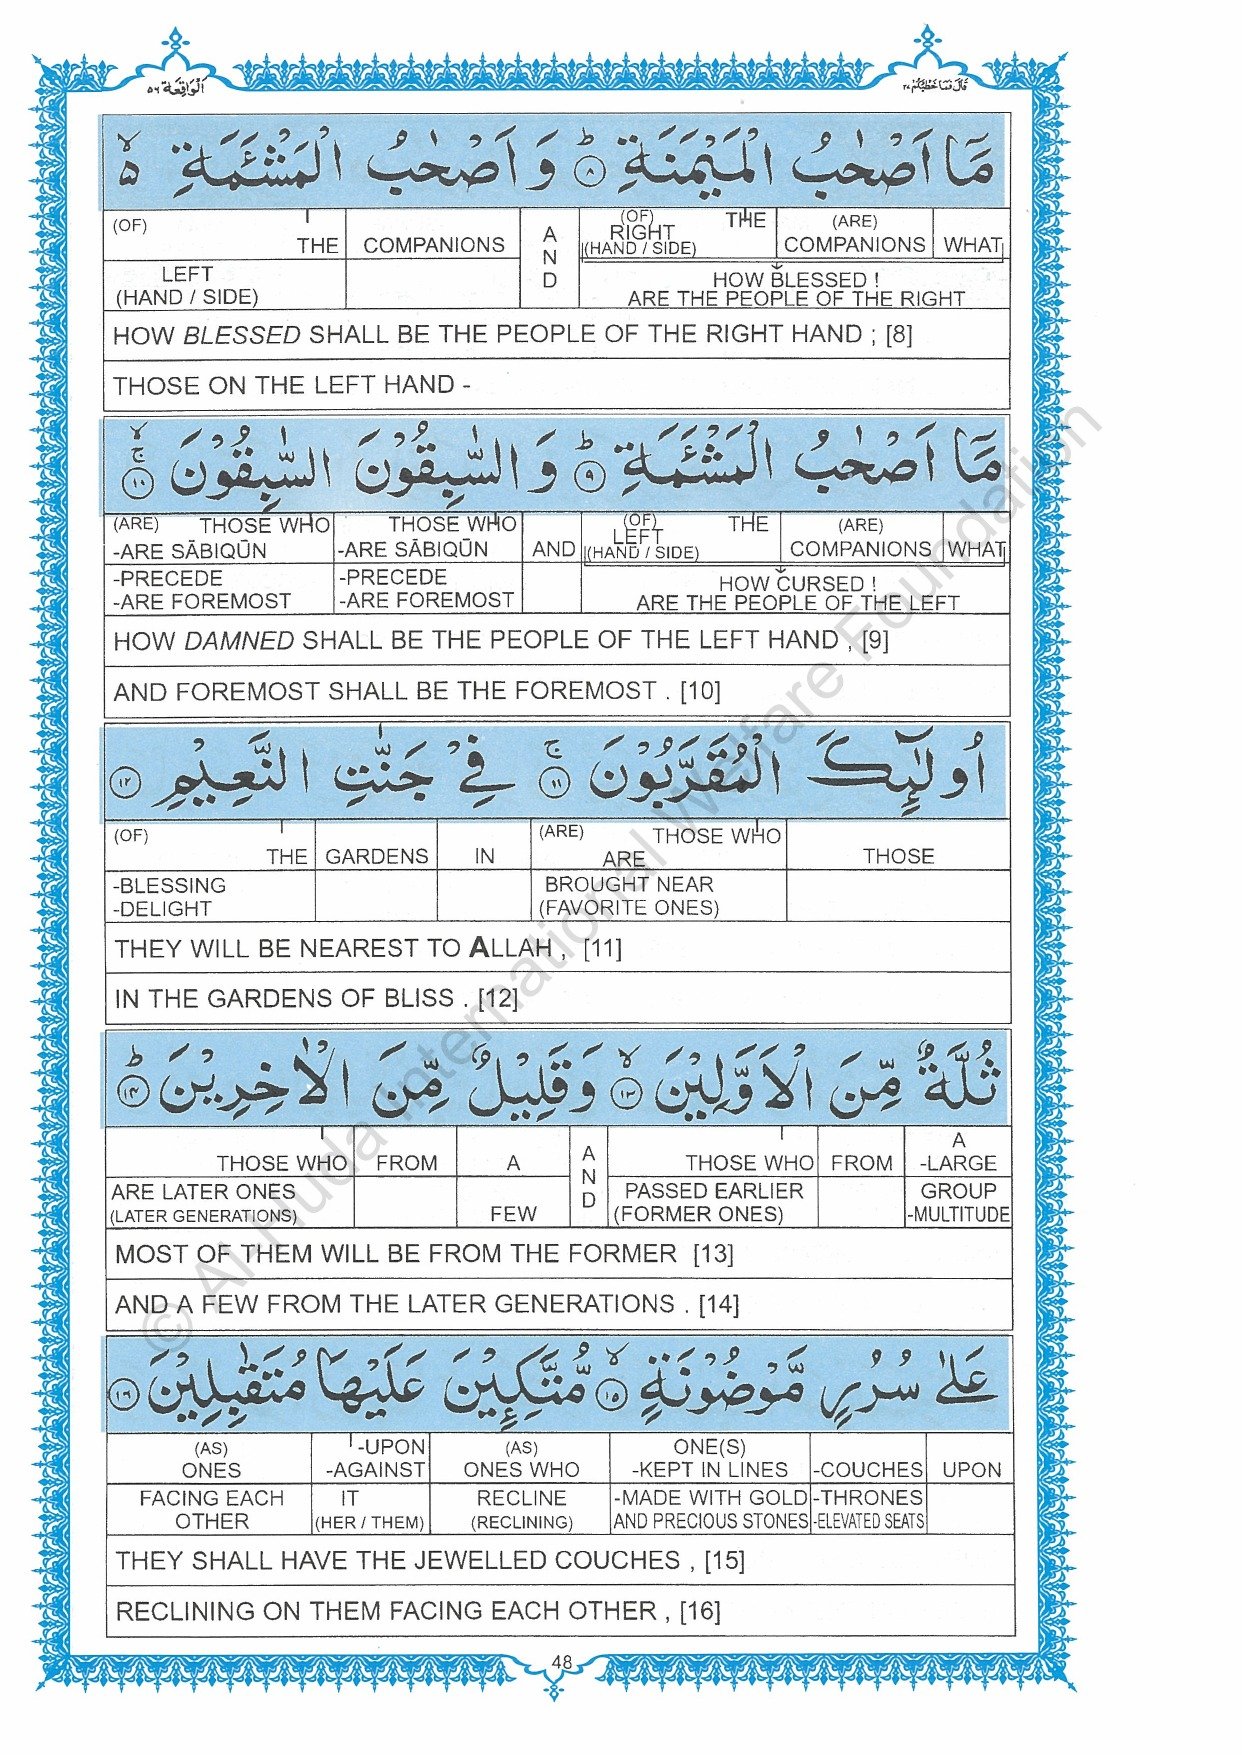 اَلْوَاقِعَة ٥٦
قَالَ فَمَا خَطْبُكُمْ ٢٧
مَاۤ اَصْحٰبُ الْمَيْمَنَةِ ؕ ٨ وَ اَصْحٰبُ الْمَشْـَٔمَةِ ۙ۬
(OF) THE | COMPANIONS | AND | (OF) THE RIGHT (HAND / SIDE) | (ARE) COMPANIONS | WHAT
LEFT (HAND / SIDE) | HOW BLESSED ! ARE THE PEOPLE OF THE RIGHT
HOW BLESSED SHALL BE THE PEOPLE OF THE RIGHT HAND ; [8]
THOSE ON THE LEFT HAND -
مَاۤ اَصْحٰبُ الْمَشْـَٔمَةِ ؕ ٩ وَ السّٰبِقُوْنَ السّٰبِقُوْنَ ۚۙ ١٠
(ARE) THOSE WHO | THOSE WHO | (OF) THE | (ARE)
-ARE SĀBIQŪN | -ARE SĀBIQŪN | AND | LEFT (HAND / SIDE) | COMPANIONS | WHAT
-PRECEDE | -PRECEDE | HOW CURSED !
-ARE FOREMOST | -ARE FOREMOST | ARE THE PEOPLE OF THE LEFT
HOW DAMNED SHALL BE THE PEOPLE OF THE LEFT HAND , [9]
AND FOREMOST SHALL BE THE FOREMOST . [10]
اُولٰٓئِكَ الْمُقَرَّبُوْنَ ۚ ١١ فِيْ جَنّٰتِ النَّعِيْمِ ١٢
(OF) | (ARE) THOSE WHO
THE | GARDENS | IN | ARE | THOSE
-BLESSING | BROUGHT NEAR
-DELIGHT | (FAVORITE ONES)
THEY WILL BE NEAREST TO ALLAH , [11]
IN THE GARDENS OF BLISS . [12]
ثُلَّةٌ مِّنَ الْاَوَّلِيْنَ ۙ ١٣ وَ قَلِيْلٌ مِّنَ الْاٰخِرِيْنَ ؕ ١٤
A
THOSE WHO | FROM | A | AND | THOSE WHO | FROM | -LARGE
ARE LATER ONES | PASSED EARLIER | GROUP
(LATER GENERATIONS) | FEW | (FORMER ONES) | -MULTITUDE
MOST OF THEM WILL BE FROM THE FORMER [13]
AND A FEW FROM THE LATER GENERATIONS . [14]
عَلٰى سُرُرٍ مَّوْضُوْنَةٍ ۙ ١٥ مُّتَّكِـِٕيْنَ عَلَيْهَا مُتَقٰبِلِيْنَ ١٦
(AS) | -UPON | (AS) | ONE(S)
ONES | -AGAINST | ONES WHO | -KEPT IN LINES | -COUCHES | UPON
FACING EACH | IT | RECLINE | -MADE WITH GOLD | -THRONES
OTHER | (HER / THEM) | (RECLINING) | AND PRECIOUS STONES | -ELEVATED SEATS
THEY SHALL HAVE THE JEWELLED COUCHES , [15]
RECLINING ON THEM FACING EACH OTHER , [16]
48
© Al-Huda International Welfare Foundation